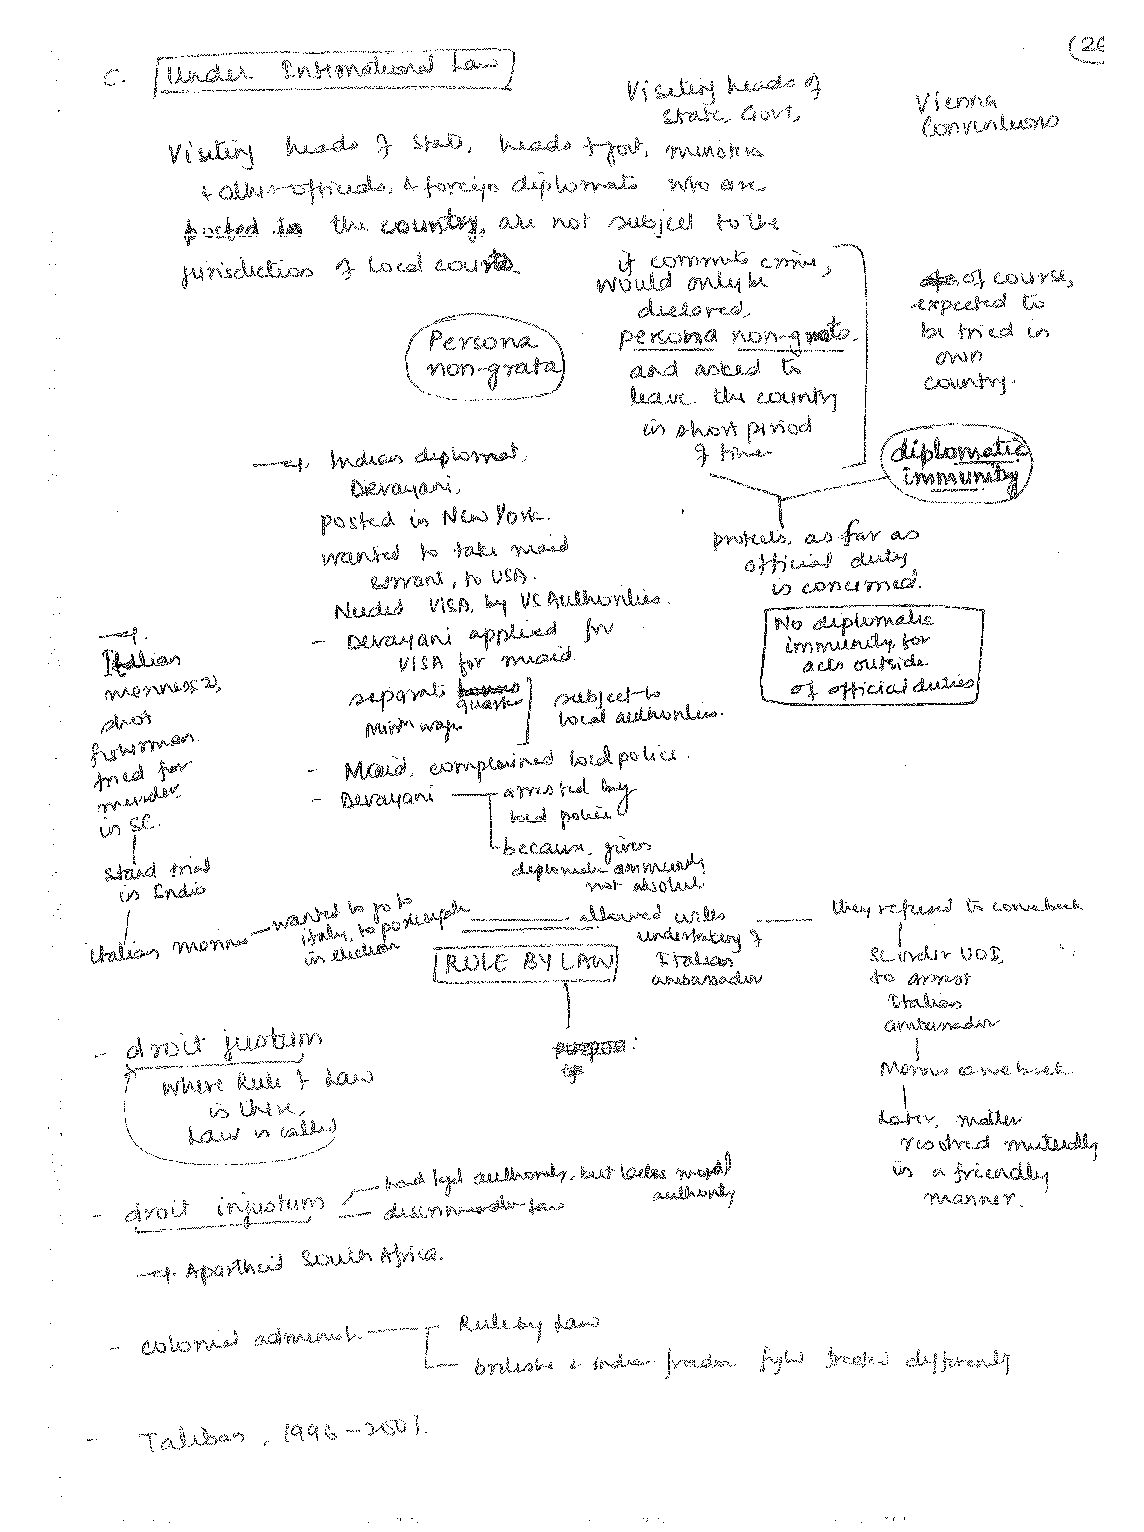 (26
C. Under International Law
Visiting heads of
State, Govt,
Vienna
Conventions
Visiting heads of State, heads of govt, ministers
& other officials, & foreign diplomats who are
posted in the country, are not subject to the
jurisdiction of local courts.
if commits crime,
would only be
declared,
persona non-grata.
and asked to
leave the country
in short period
of time
of course,
expected to
be tried in
own
country.
Persona
non-grata
diplomatic
immunity
protects, as far as
official duty
is concerned.
No diplomatic
immunity for
acts outside
of official duties
→ Indian diplomat,
Devayani,
posted in New York.
wanted to take maid
servant, to USA.
Needed VISA, by US Authorities.
- Devayani applied for
VISA for maid
separate
Minm wage
subject to
local authorities.
- Maid, complained local police.
- Devayani
arrested by
local police
because, given
diplomatic immunity
not absolute
→
Italian
shot
fisherman
tried for
murder,
in SC.
stand trial
in India
Italian marines
wanted to go to
Italy, to participate
in election
allowed with
undertaking of
Italian
ambassador
they refused to come back
SC order UOI,
to arrest
Italian
ambassador
Marines came back
Later, matter
resolved mutually
in a friendly
manner.
RULE BY LAW
- droit justum
where Rule of Law
is there,
Law is called
- droit injustum
had legal authority, but lacks moral
authority
discriminatory law
→ Apartheid South Africa.
- colonial administ.
Rule by Law
British & Indian freedom fight treated differently
- Taliban, 1996-2001.